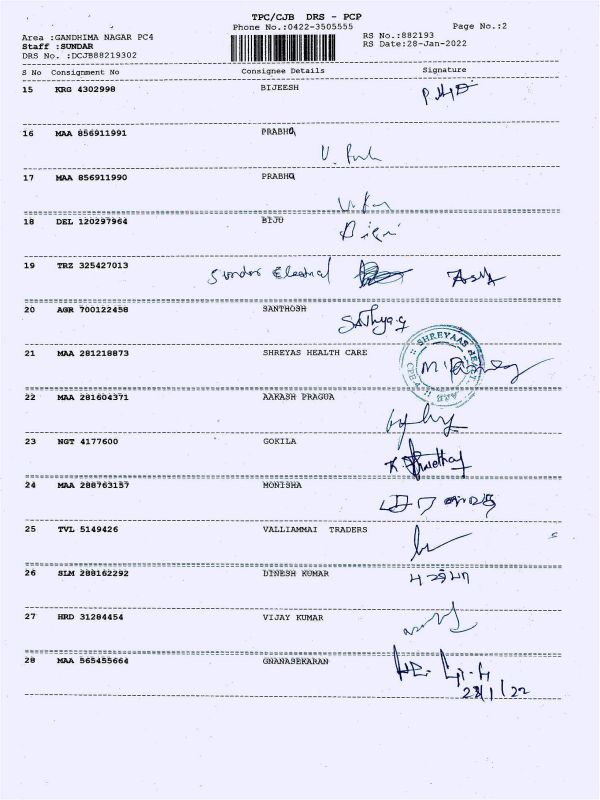 TPC/CJB DRS - PCP
Phone No.:0422-3505555 Page No.:2
Area :GANDHIMA NAGAR PC4 RS No.:882193
Staff :SUNDAR RS Date:28-Jan-2022
DRS No. :DCJB88219302
S No Consignment No Consignee Details Signature
15 KRG 4302998 BIJEESH
16 MAA 856911991 PRABHQ
17 MAA 856911990 PRABHQ
18 DEL 120297964 BIJU
19 TRZ 325427013 Sundar Electrical
20 AGR 700122458 SANTHOSH
Sathya.g
21 MAA 281218873 SHREYAS HEALTH CARE
SHREYAAS
22 MAA 281604371 AAKASH PRAGUA
23 NGT 4177600 GOKILA
24 MAA 288763157 MONISHA
25 TVL 5149426 VALLIAMMAI TRADERS
26 SLM 288162292 DINESH KUMAR
27 HRD 31284454 VIJAY KUMAR
28 MAA 565455664 GNANASEKARAN
28/1/22